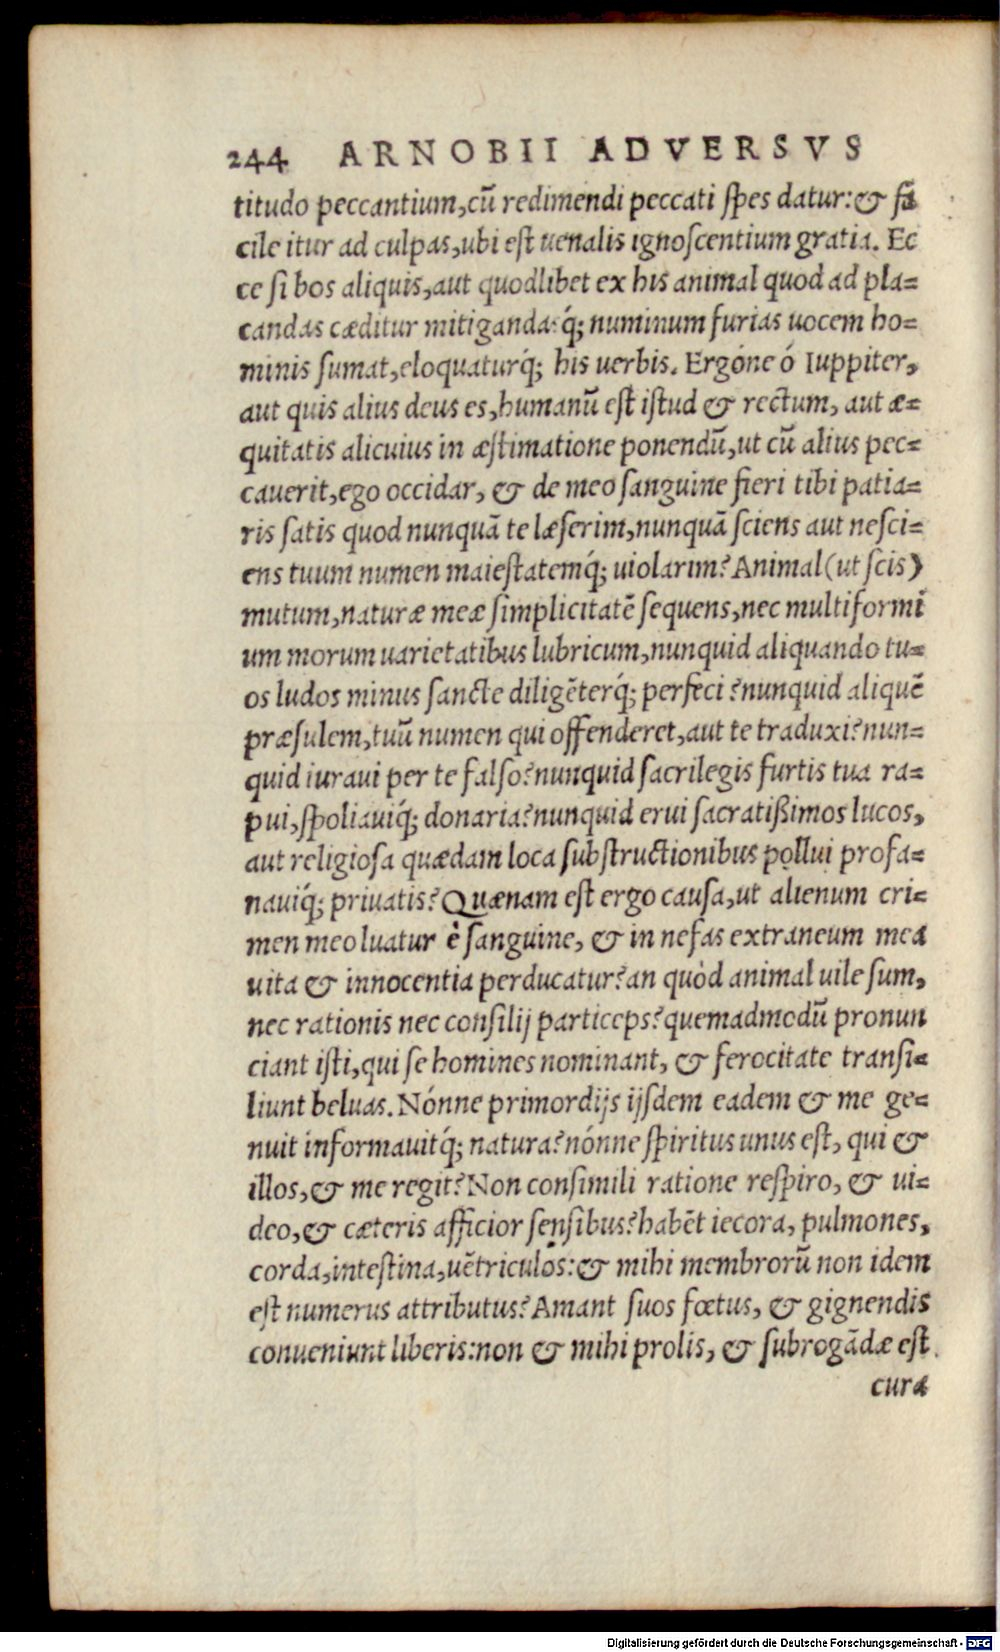 244 ARNOBII ADVERSVS
titudo peccantium,cū redimendi peccati ſpes datur:& fa
cile itur ad culpas,ubi eſt uenalis ignoſcentium gratia. Ec
ce ſi bos aliquis,aut quodlibet ex his animal quod ad pla=
candas cæditur mitigandaſq́; numinum furias uocem ho=
minis ſumat,eloquaturq́; his uerbis. Ergóne ó Iuppiter,
aut quis alius deus es,humanū eſt iſtud & rectum, aut æ=
quitatis alicuius in æſtimatione ponendū,ut cū alius pec=
cauerit,ego occidar, & de meo ſanguine fieri tibi patia=
ris ſatis quod nunquā te læſerim,nunquā ſciens aut neſci=
ens tuum numen maieſtatemq́; uiolarim? Animal (ut ſcis)
mutum,naturæ meæ ſimplicitatē ſequens,nec multiformi
um morum uarietatibus lubricum,nunquid aliquando tu=
os ludos minus ſancte diligēterq́; perfeci? nunquid aliquē
præſulem,tuū numen qui offenderet,aut te traduxi? nun=
quid iuraui per te falſo? nunquid ſacrilegis furtis tua ra=
pui,ſpoliauiq́; donaria? nunquid erui ſacratiſſimos lucos,
aut religioſa quædam loca ſubſtructionibus pollui profa=
nauiq́; priuatis? Quænam eſt ergo cauſa,ut alienum cri=
men meo luatur è ſanguine, & in nefas extraneum mea
uita & innocentia perducatur? an quòd animal uile ſum,
nec rationis nec conſilij particeps? quemadmodū pronun
ciant iſti,qui ſe homines nominant, & ferocitate tranſi=
liunt beluas. Nónne primordijs ijſdem eadem & me ge=
nuit informauitq́; natura? nónne ſpiritus unus eſt, qui &
illos,& me regit? Non conſimili ratione reſpiro, & ui=
deo,& cæteris afficior ſenſibus? habēt iecora, pulmones,
corda,inteſtina,uētriculos: & mihi membrorū non idem
eſt numerus attributus? Amant ſuos fœtus, & gignendis
conueniunt liberis: non & mihi prolis, & ſubrogādæ eſt
curæ
Digitalisierung gefördert durch die Deutsche Forschungsgemeinschaft - DFG